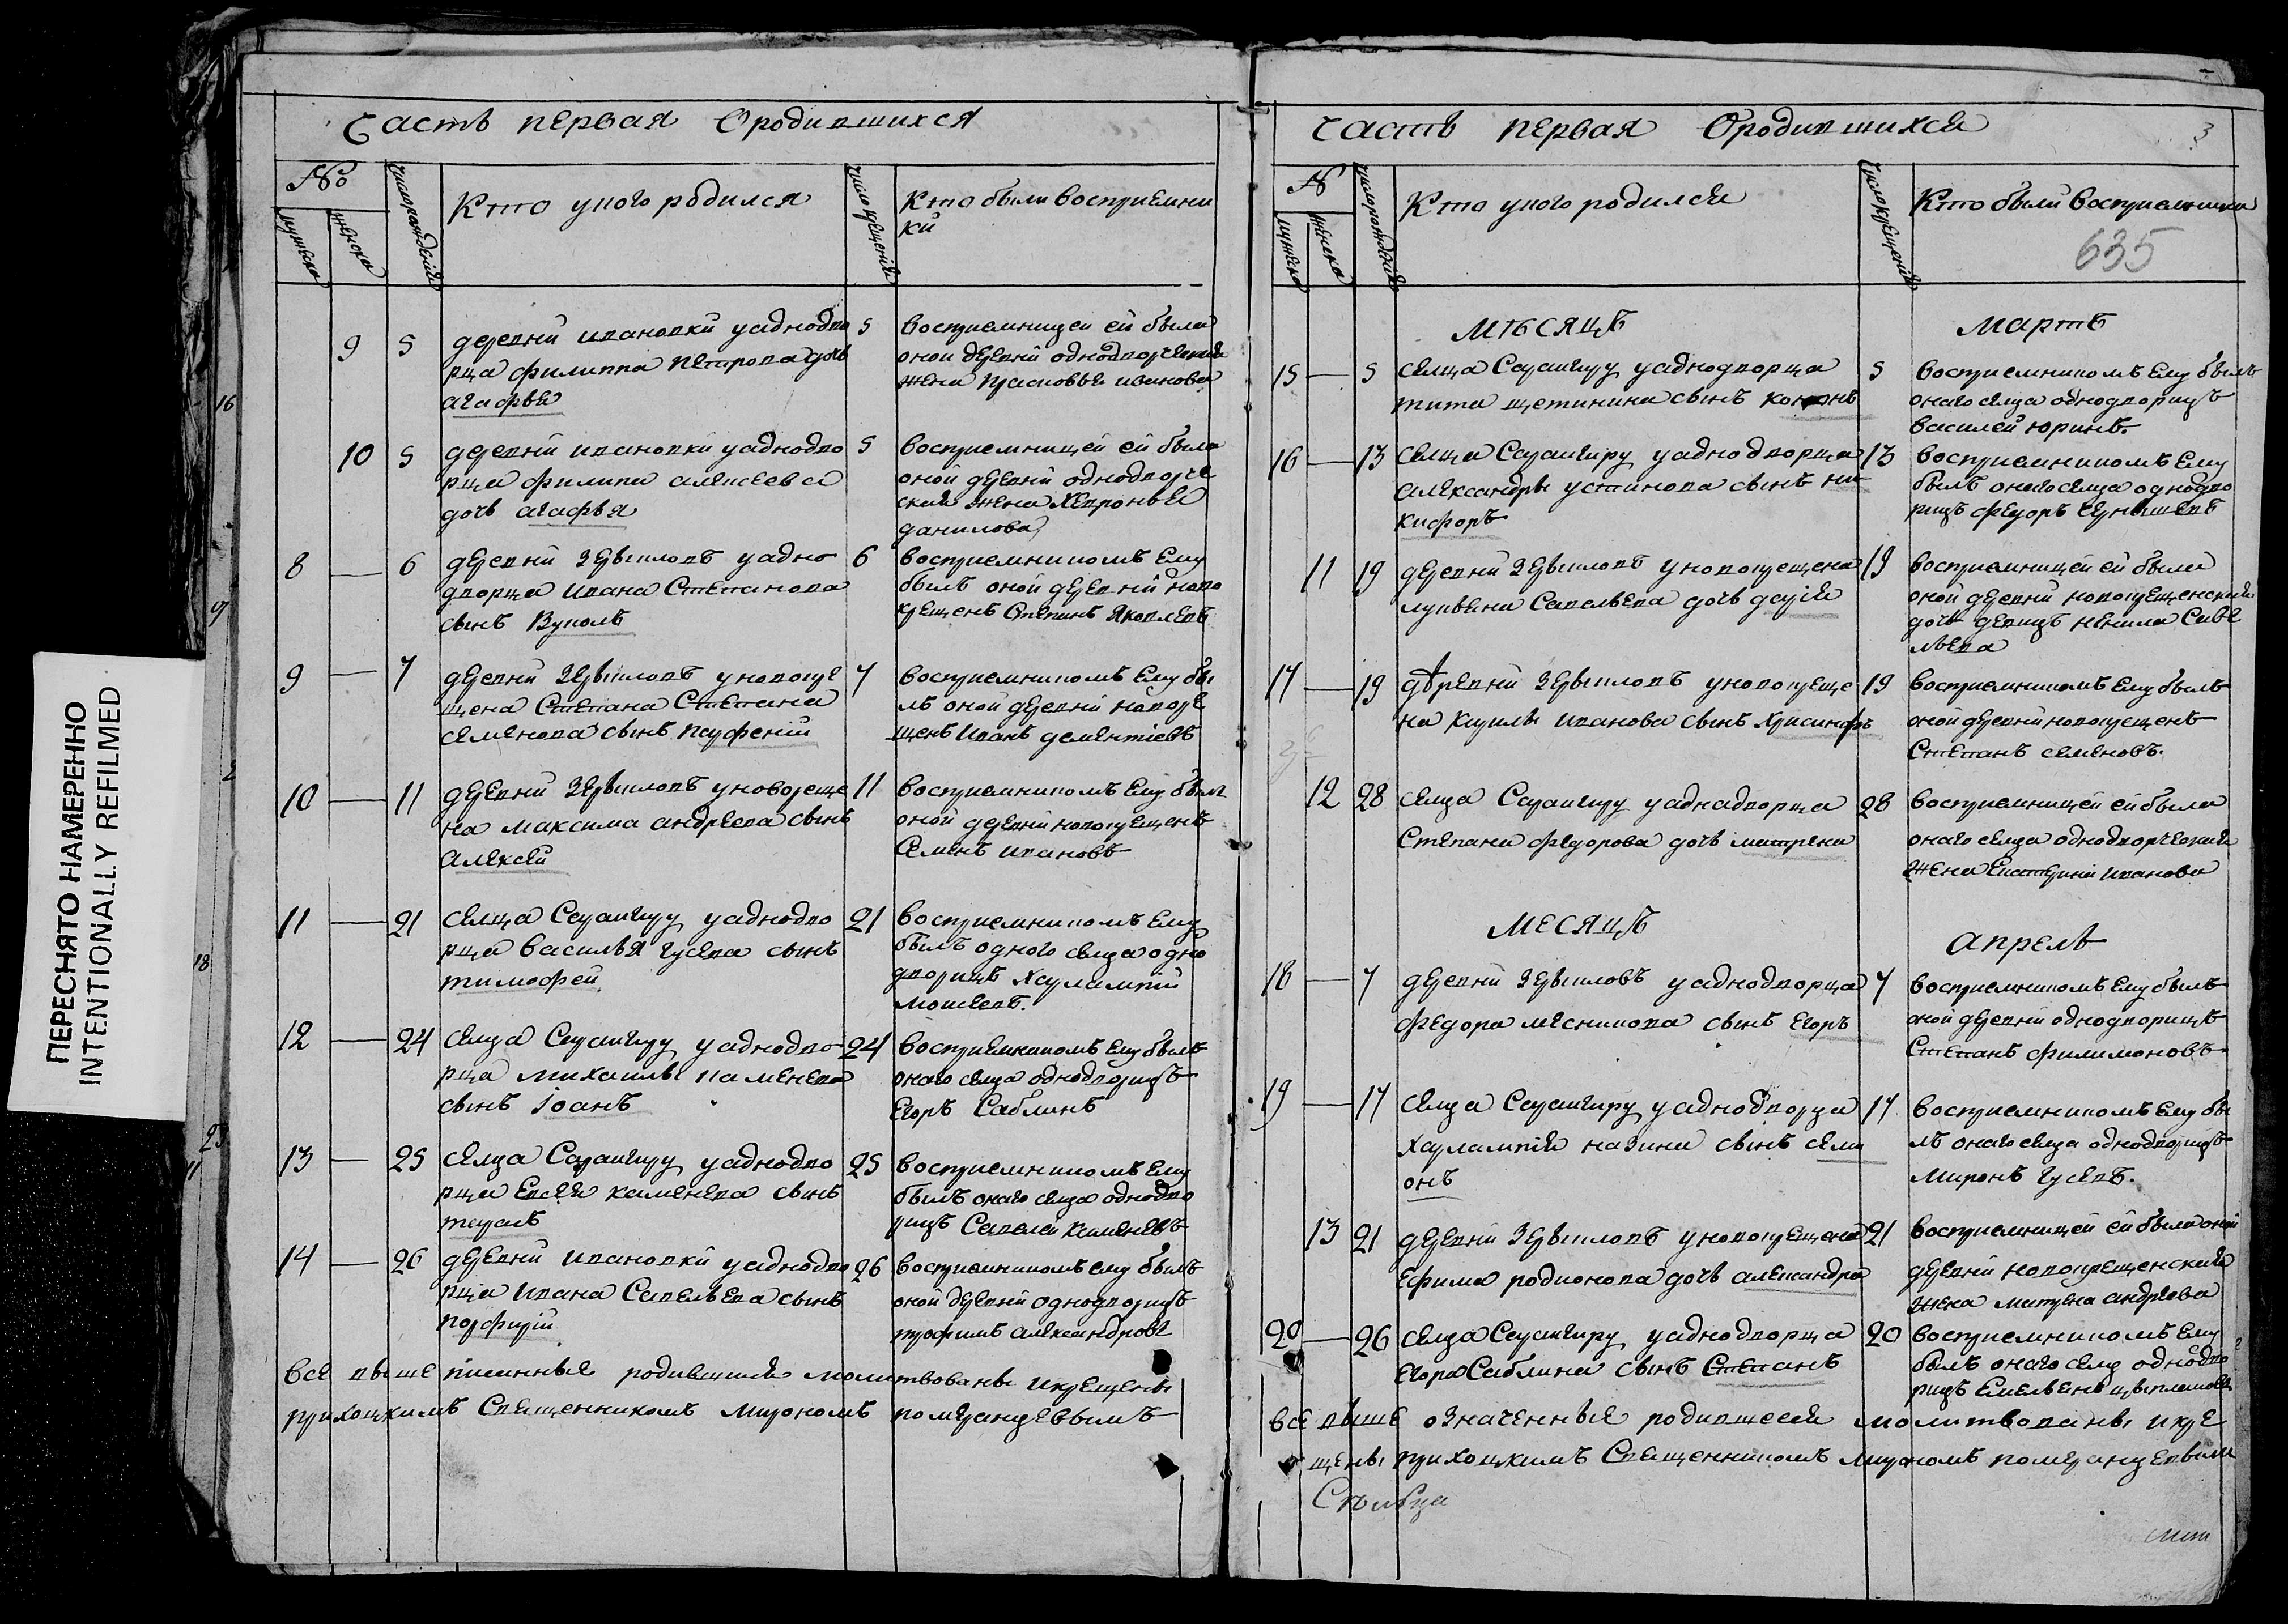 Часть первая Ородившихся
№
мужеска
женска
число рождения
Кто укого родился
число крещения
Кто были восприемни
ки
9 5 деревни ивановки уаднодво
рца филиппа петрова дочь
агафья
5 восприемницеи ей была
оной деревни однодворческая
жена прасковья иванова
10 5 деревни ивановки уаднодво
рца филипа алексеева
дочь агафья
5 восприемницей ей была
оной деревни однодворче
ская жена Хевронья
данилова
8 — 6 деревни зервыловъ уадно
дворца ивана Степанова
сынъ Вуколъ
6 восприемникомъ Ему
былъ оной деревни ново
крещенъ Степанъ Яковлевъ
9 — 7 деревни зервыловъ уновокре
щена Степана
семенова сынъ парфений
7 восприемникомъ Ему бы
лъ оной деревни новокре
щенъ Иванъ дементіевъ
10 — 11 деревни зервыловъ уновокреще
на максима андреева сынъ
Алексей
11 восприемникомъ Ему былъ
оной деревни новокрещенъ
Семенъ ивановъ
11 — 21 селца Сарангиру уаднодво
рца василья гусева сынъ
тимофей
21 восприемникомъ Ему
былъ одного селца одно
дворицъ Харлампий
моисеевъ.
12 — 24 селца Сарангиру уаднодво
рца михаилы каменева
сынъ Іоанъ
24 восприемникомъ Ему былъ
онаго селца однодворицъ
Егоръ Саблинъ
13 — 25 селца Сарангиру уаднодво
рца Евсея каменева сынъ
тарасъ
25 восприемникомъ Ему
былъ онаго селца однодво
рицъ Савелей Каменевъ
14 — 26 деревни ивановки уаднодво
рца ивана Савельева сынъ
порфирій
26 восприемникомъ ему былъ
оной деревни однодворицъ
трофимъ александровъ
все выше писанные родившиися молитвованы икрещены
прихоцкимъ Священникомъ Мирономъ померанцевымъ
Часть первая Ородившихся
3
№
мужеска
женска
число рождения
Кто укого родился
число крещения
Кто были восприемники
635
мѣсяцъ мартъ
15 — 5 селца Сарангиру уаднодворца
тита щетинина сынъ кононъ
5 восприемникомъ Ему былъ
онаго селца однодворицъ
василей юринъ.
16 — 13 селца Сарангиру уаднодворца
александры устинова сынъ ни
кифоръ
13 восприемникомъ Ему
былъ онаго селца однодво
рицъ федоръ чернышевъ
11 19 деревни зервыловъ уновокрещена
лукьяна Савельева дочь дарія
19 восприемницей ей была
оной деревни новокрещенская
дочь девицъ ненила Саве
льева
17 — 19 деревни зервыловъ уновокреще
на кирилы иванова сынъ Хрисанфъ
19 восприемникомъ Ему былъ
оной деревни новокрещенъ
Степанъ семеновъ.
12 28 селца Сарангиру уаднадворца
Степана федорова дочь матрена
28 восприемницей ей была
онаго селца однодворческая
жена Екатерина иванова
месяцъ апрель
18 — 7 деревни зервыловъ уаднодворца
федора месникова сынъ Егоръ
7 восприемникомъ Ему былъ
оной деревни однодворицъ
Степанъ филимоновъ
19 — 17 селца Сарангиру уаднодворца
харлампия назина сынъ семи
онъ
17 восприемникомъ Ему бы
лъ онаго селца однодворицъ
Миронъ гусевъ.
13 21 деревни зервыловъ уновокрещена
Ефима родионова дочь александра
21 восприемницей ей была оной
деревни новокрещенская
жена матрена андреева
20 — 26 селца Сарангиру уаднодворца
Егора Саблина сынъ Степанъ
20 восприемникомъ Ему
былъ онаго селца однодво
рицъ Емельянъ
все выше означенныя родившееся молитвованы икре
щены прихоцкимъ Священникомъ Мирономъ померанцевымъ
16
18
ПЕРЕСНЯТО НАМЕРЕННО
INTENTIONALLY REFILMED